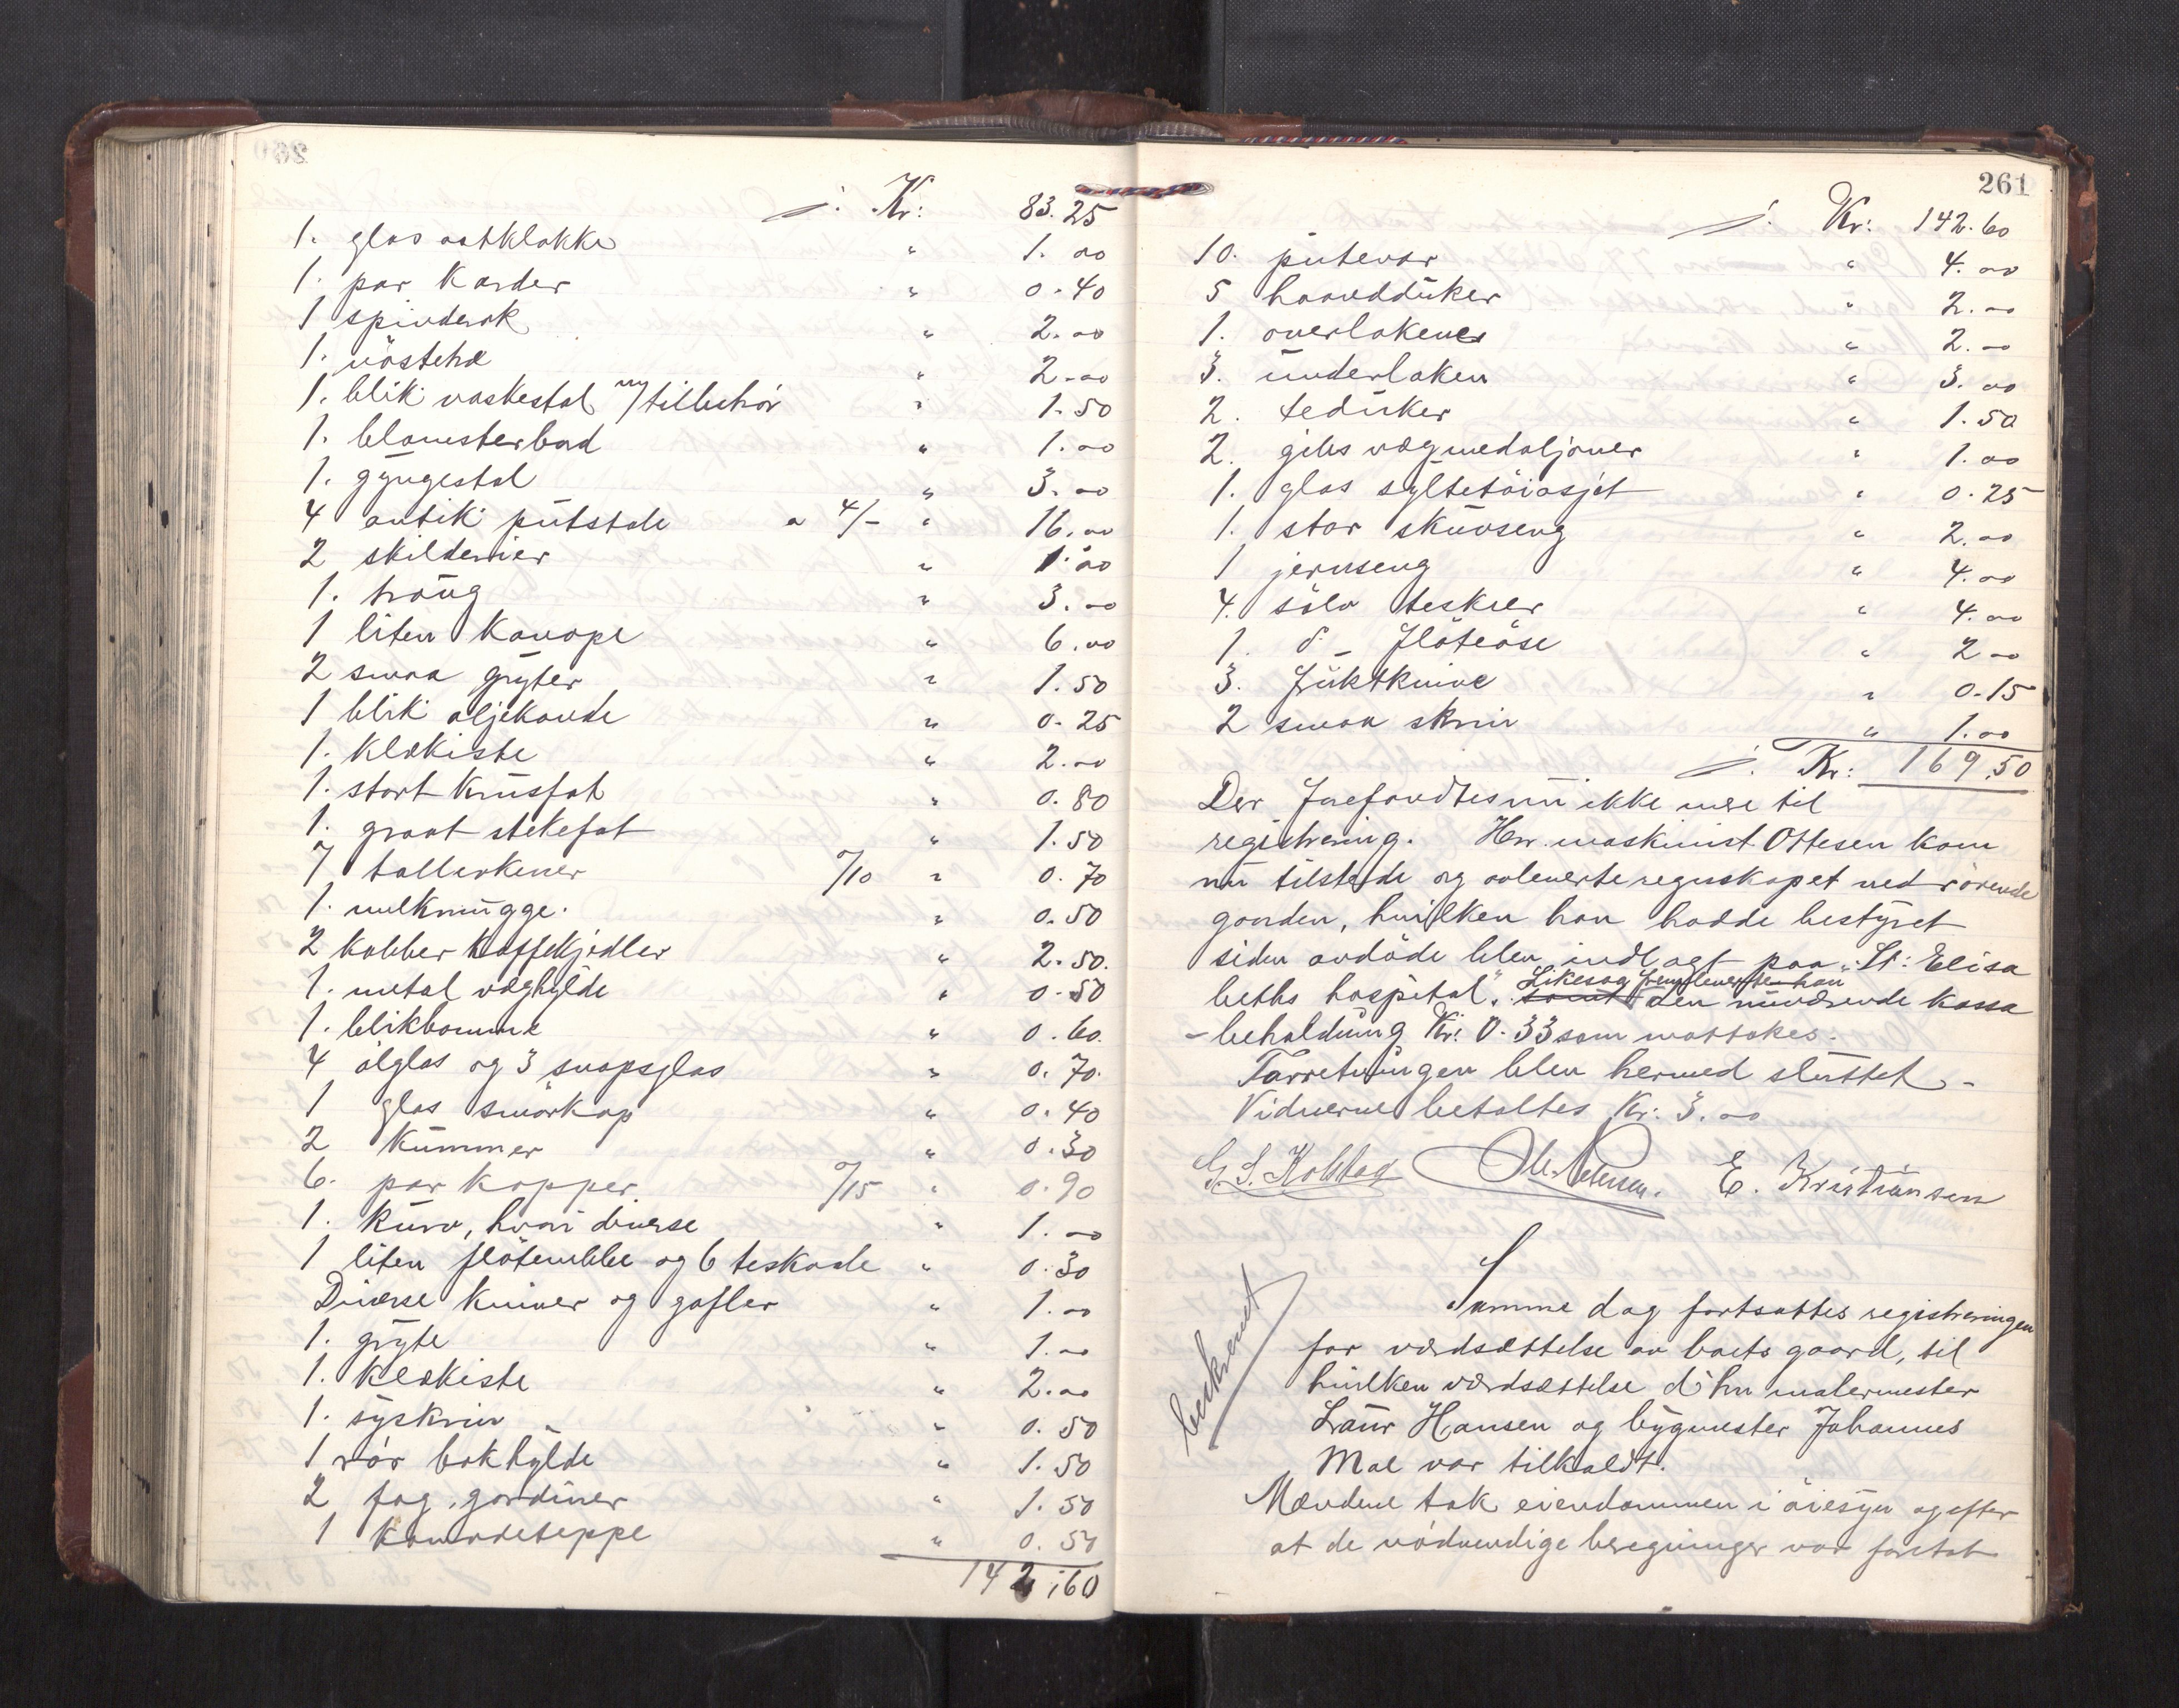 260
./. Kr: 83.25
1. glas ostklokke " 1.00
1. par karder " 0.40
1 spinderok " 2.00
1. nöstehæ " 2.00
1. blik vaskestol m/tilbehör " 1.50
1. blomsterbord " 1.00
1. gyngestol " 3.00
4 antik pütstole a 4/- " 16.00
2 skilderier " 1.00
1. traug " 3.00
1 liten kanape " 6.00
2 smaa gryter " 1.50
1 blik oljekande " 0.25
1. klækiste " 2.00
1. stort krusfat " 0.80
1. graat stekefat " 1.50
7 tallerkener 0/10 " 0.70
1. melkmügge. " 0.50
2 kobber kaffekjedler " 2.50.
1. metal væghylde " 0.50
1. blikbomme " 0.60.
4 ölglas og 3 snapsglas " 0.70.
1 glas smörkop " 0.40
2 kummer " 0.30
6. par kopper 0/15 " 0.90
1. kurv, hvori diverse " 1.00
1 liten flötenebbe og 6 teskade " 0.30
Diverse kniver og gafler " 1.00
1. gryte " 1.00
1. klækiste " 2.00
1. syskrin " 0.50
1 rör bokhylde " 1.50
2 fag gardiner " 1.50
1 komodeteppe " 0.50
142.60
261
./. Kr: 142.60
10. putevar " 4.00
5 haandduker " 2.00
1. overlakener " 2.00
3. underlaken " 3.00
2. teduker " 1.50
2. gibs vægmedaljoner " 1.00
1. glas syltetöiasjet " 0.25
1. stor skuvseng " 2.00
1 jernseng " 4.00
4. sölv teskeer " 4.00
1. d- flöteöse " 2.00
3. früktknive " 0.15
2 smaa skrin " 1.00
./. Kr: 169.50
Der forefandtes nu ikke mere til
registrering. Herr. maskinist Ottesen kom
nu tilstede og avleverte regnskapet ved rörende
gaarden, hvilken han hadde bestyret
siden avdöde blev indlagt paa "St: Elisa
beths hospital". Likesaa fremleverte han
somt den nuværende kassa
-beholdning Kr: 0.33 som mottokes.
Forretningen blev hermed sluttet.-
Vidnerne betaltes Kr: 3.00
G. S. Kobbag Ole Petersen. E. Kristiansen
beskrevet
Samme dag fortsattes registreringen
for værdsættelse av boets gaard, til
hvilken værdsættelse d'hrr malermester
Laur Hansen og bygmester Johannes
Moe var tilkaldt.
Mændene tok eiendommen i öiesyn og efter
at de nödvendige beregninger var foretat